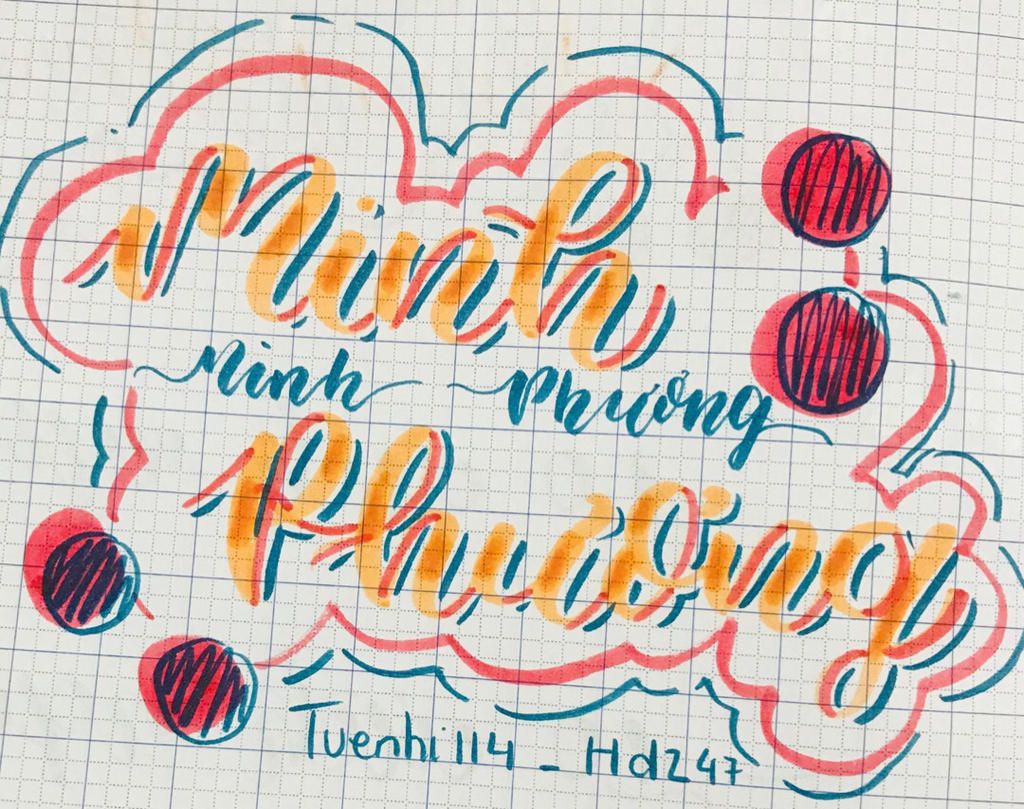 Minh
Minh Phương
Phương
Tuenhi114 - Hd247